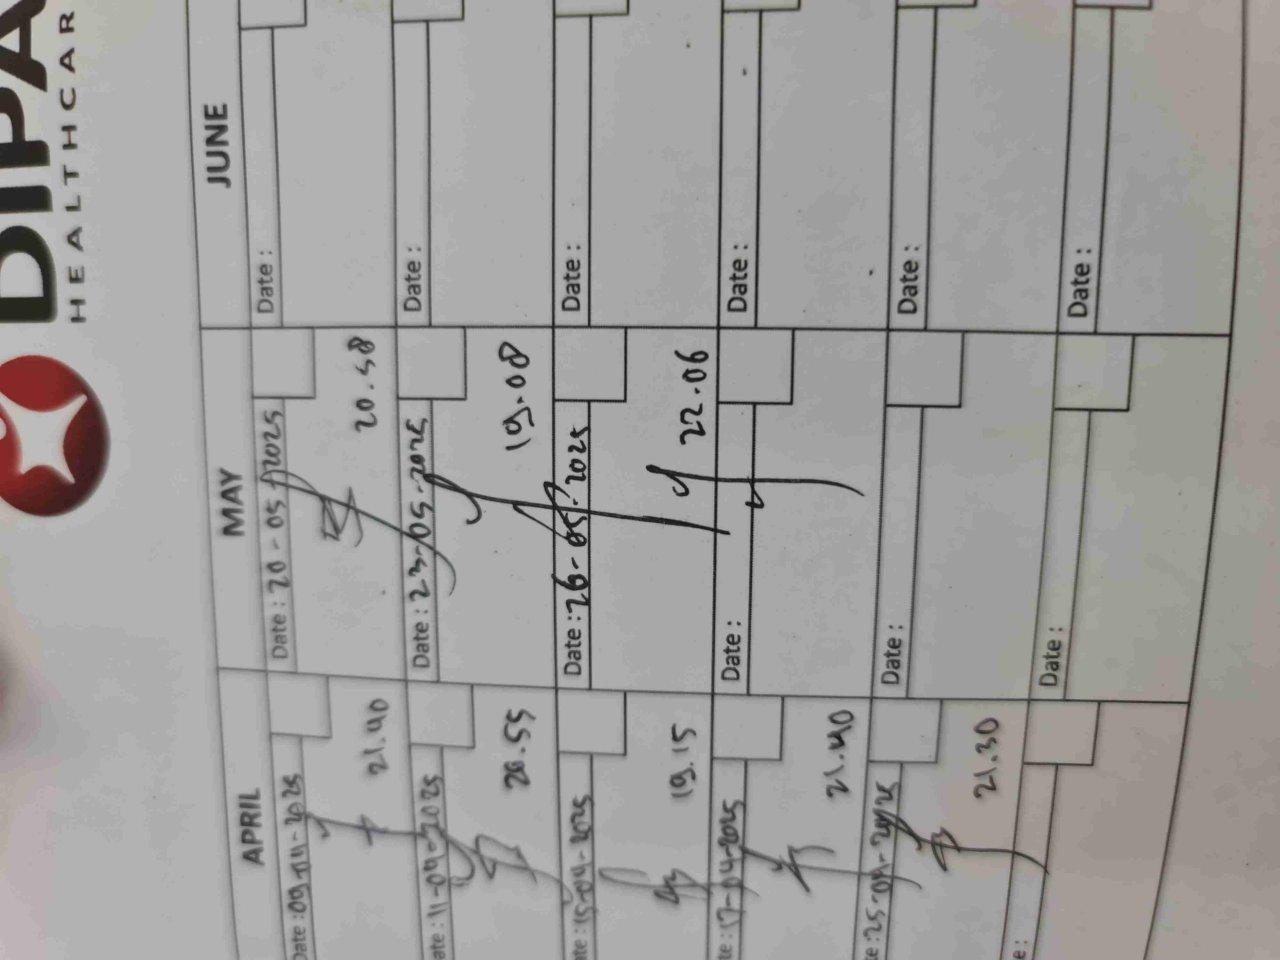 DIPA
HEALTHCAR
APRIL MAY JUNE
ate : 09-04-2025 Date : 20-05-2025 Date :
21.40 20.58
ate : 11-04-2025 Date : 23-05-2025 Date :
20.55 19.08
te : 15-04-2025 Date : 26-05-2025 Date :
19.15 22.06
te : 17-04-2025 Date : Date :
21.40
te : 25-04-2025 Date : Date :
21.30
e : Date : Date :